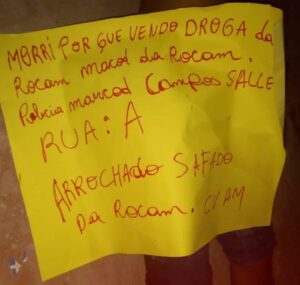 MORRI POR QUE VENDO DROGA da
Rocam macol da Rocam.
Policia marcod Campos SALLE
RUA: A
ARROCHADO SAFADO
Da Rocam. CV.AM